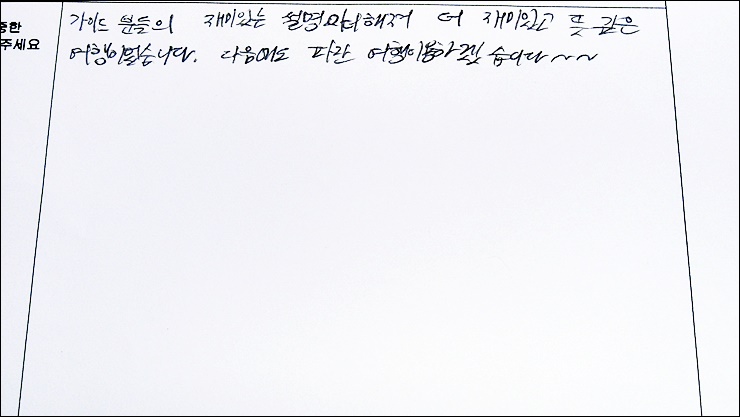 중한
주세요
가이드 분들의 재미있는 설명이 더해져 더 재미있고 뜻 깊은
여행이었습니다. 다음에도 파란 여행이용하겠습니다~~